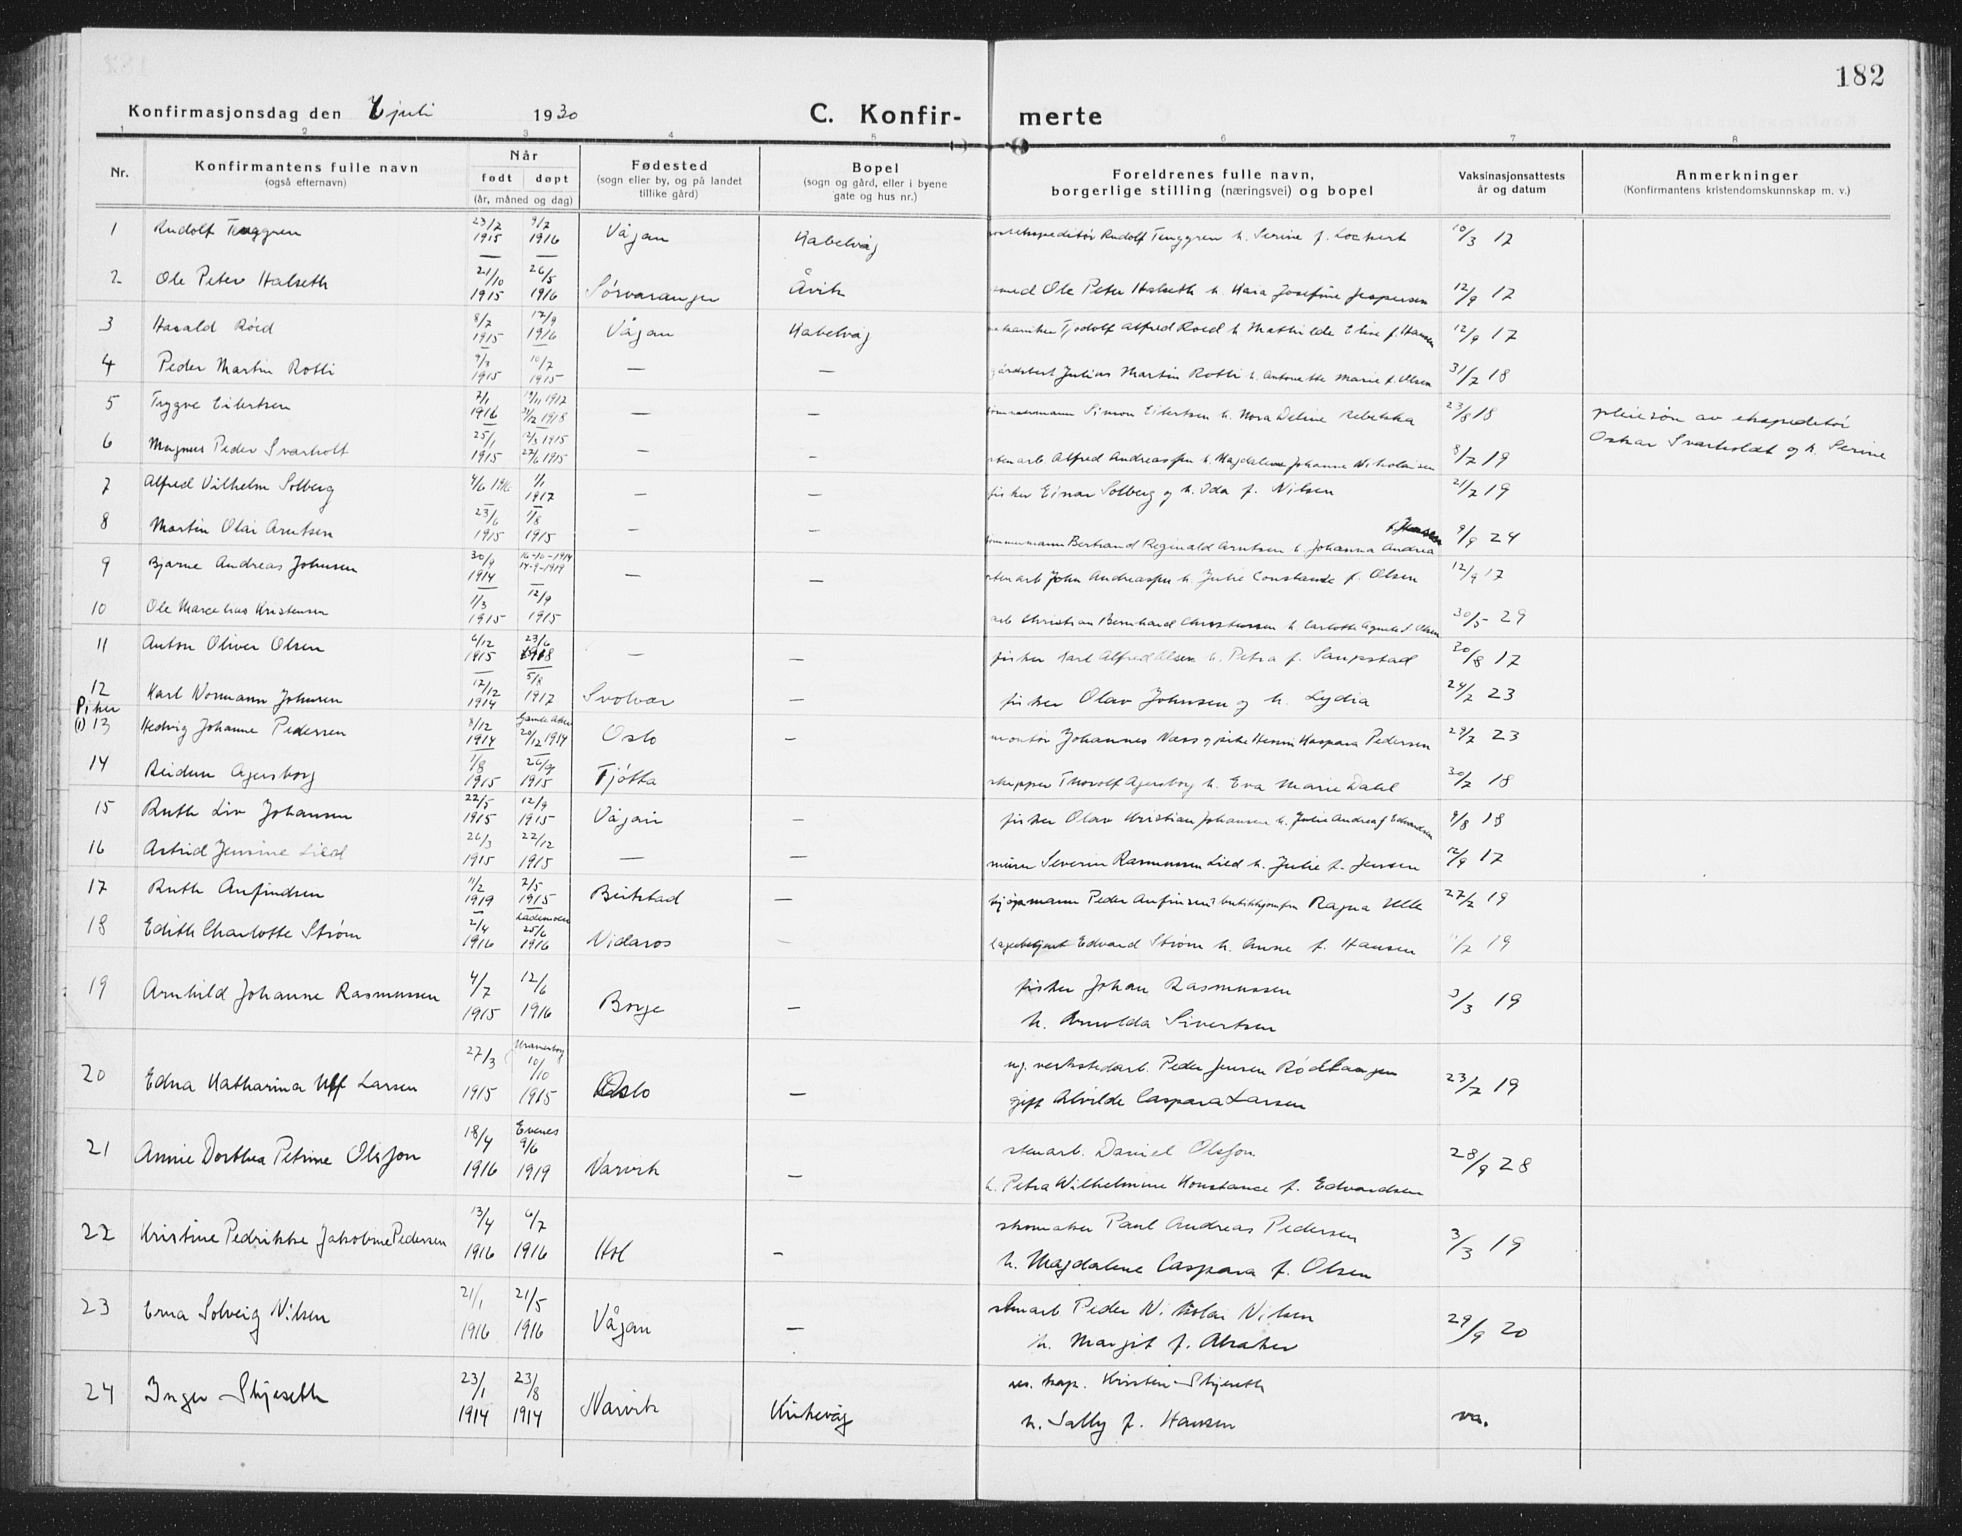 182
Konfirmasjonsdag den juli 1930 C. Konfir- merte
1 2 3 4 5 6 7 8
Nr. Konfirmantens fulle navn (også efternavn) Når født døpt (år, måned og dag) Fødested (sogn eller by, og på landet tillike gård) Bopel (sogn og gård, eller i byene gate og hus nr.) Foreldrenes fulle navn, borgerlige stilling (næringsvei) og bopel Vaksinasjonsattests år og datum Anmerkninger (Konfirmantens kristendomskunnskap m. v.)
1 Rudolf Tenggren 23/2 1915 9/7 1916 Vågan Kabelvåg Rudolf Tenggren h. Serine f. Lockert 10/3 17
2 Ole Peter Halseth 21/10 1915 26/5 1916 Sørvaranger Åvik smed Ole Peter Halseth h. Kara Josefine Jespersen 12/9 17
3 Harald Röed 8/7 1915 17/9 1916 Vågan Kabelvåg Alfred Roed h Mathilde Elise f. Hansen 12/9 17
4 Peder Martin Rotli 9/3 1915 10/7 1915 — — Julius Martin Rotli h. Antonette Marie f. Olsen 31/7 18
5 Trygve Eilertsen 7/1 1916 — — Simon Eilertsen h. Nora Deline Rebekka 23/8 18 pleiesön av ekspeditör
6 Magnus Peder Svarholt 25/1 1915 12/3 1915 27/6 1915 — — stenarb. Alfred Andreassen h. Magdalene Johanne Nikolaisen 8/7 19 Oskar Svarholdt og h. Serine
7 Alfred Vilhelm Solberg 4/6 1916 1/1 1917 — — fisker Einar Solberg og h. Ida f. Nilsen 21/7 19
8 Martin Olai Arntsen 23/6 1915 1/8 1915 — — tömmermann Bertrand Reginald Arntsen h. Johanna Andrea f. Jensen 9/9 24
9 Bjarne Andreas Johnsen 30/9 1914 — — stenarb John Andreassen h. Julie Constanse f. Olsen 12/9 17
10 Ole Marcelius Kristensen 1/3 1915 12/9 1915 arb Christian Bernhard Christensen h. Carlotte Agnete f. Olsen 30/5 29
11 Anton Oliver Olsen 6/12 1915 23/6 1918 — — fisker Karl Alfred Olsen h. Petra f. Saupstad 30/8 17
12 Karl Normann Johnsen 17/12 1914 5/8 1917 Svolvær — fisker Olav Johnsen og h. Lydia 24/2 23
Piker
(1) 13 Hedvig Johanne Pedersen 8/12 1914 Gamle Aker 20/12 1914 Oslo — montör Johannes Næss og pike Henni Kaspara Pedersen 29/7 23
14 Reidun Agersborg 1/8 1915 26/9 1915 Tjötta skipper Thorolf Agersborg h. Eva Marie Dahl 30/7 18
15 Ruth Liv Johansen 22/5 1915 12/9 1915 Vågan — fisker Olav Kristian Johansen h. Julie Andrea f Edvardsen 9/8 18
16 Astrid Jensine Lied 26/3 1915 22/12 1915 — — murer Severin Rasmussen Lied h. Julie f. Jensen 12/9 17
17 Ruth Anfindsen 11/2 1919 2/5 1915 Beitstad — Peder Anfinsen Ragna Ulle 27/2 19
18 Edith Charlotte Ström 2/4 1916 Lademoen 25/6 1916 Nidaros — Edvard Ström h. Anne f. Hansen 11/2 19
19 Arnhild Johanne Rasmussen 4/7 1915 12/6 1916 Borge — fisker Johan Rasmussen
h. Arnolda Sivertsen 3/3 19
20 Edna Katharina Ulf Larsen 27/3 1915 Uranienborg 10/10 1915 Oslo — ug. verkstedarb. Peder Jensen Rödhaugen
gift Alvilde Caspara Larsen 23/7 19
21 Annie Dorthea Petrine Olsson 18/4 1916 Evenes 9/6 1919 Narvik — stenarb. Daniel Olsson
h. Petra Wilhelmine Konstance f. Edvardsen 28/9 28
22 Kristine Pedrikke Jakobine Pedersen 13/4 1916 6/7 1916 Hol — skomaker Paul Andreas Pedersen
h. Magdalene Caspara f. Olsen 3/3 19
23 Erna Solveig Nilsen 21/1 1916 21/5 1916 Vågan — stenarb Peder Nikolai Nilsen
h. Margit f. Abraker 29/9 20
24 Inger Skjeseth 23/1 1914 23/8 1914 Narvik Kirkevåg res. kap. Kristen Skjeseth
h. Sally f. Hansen va.